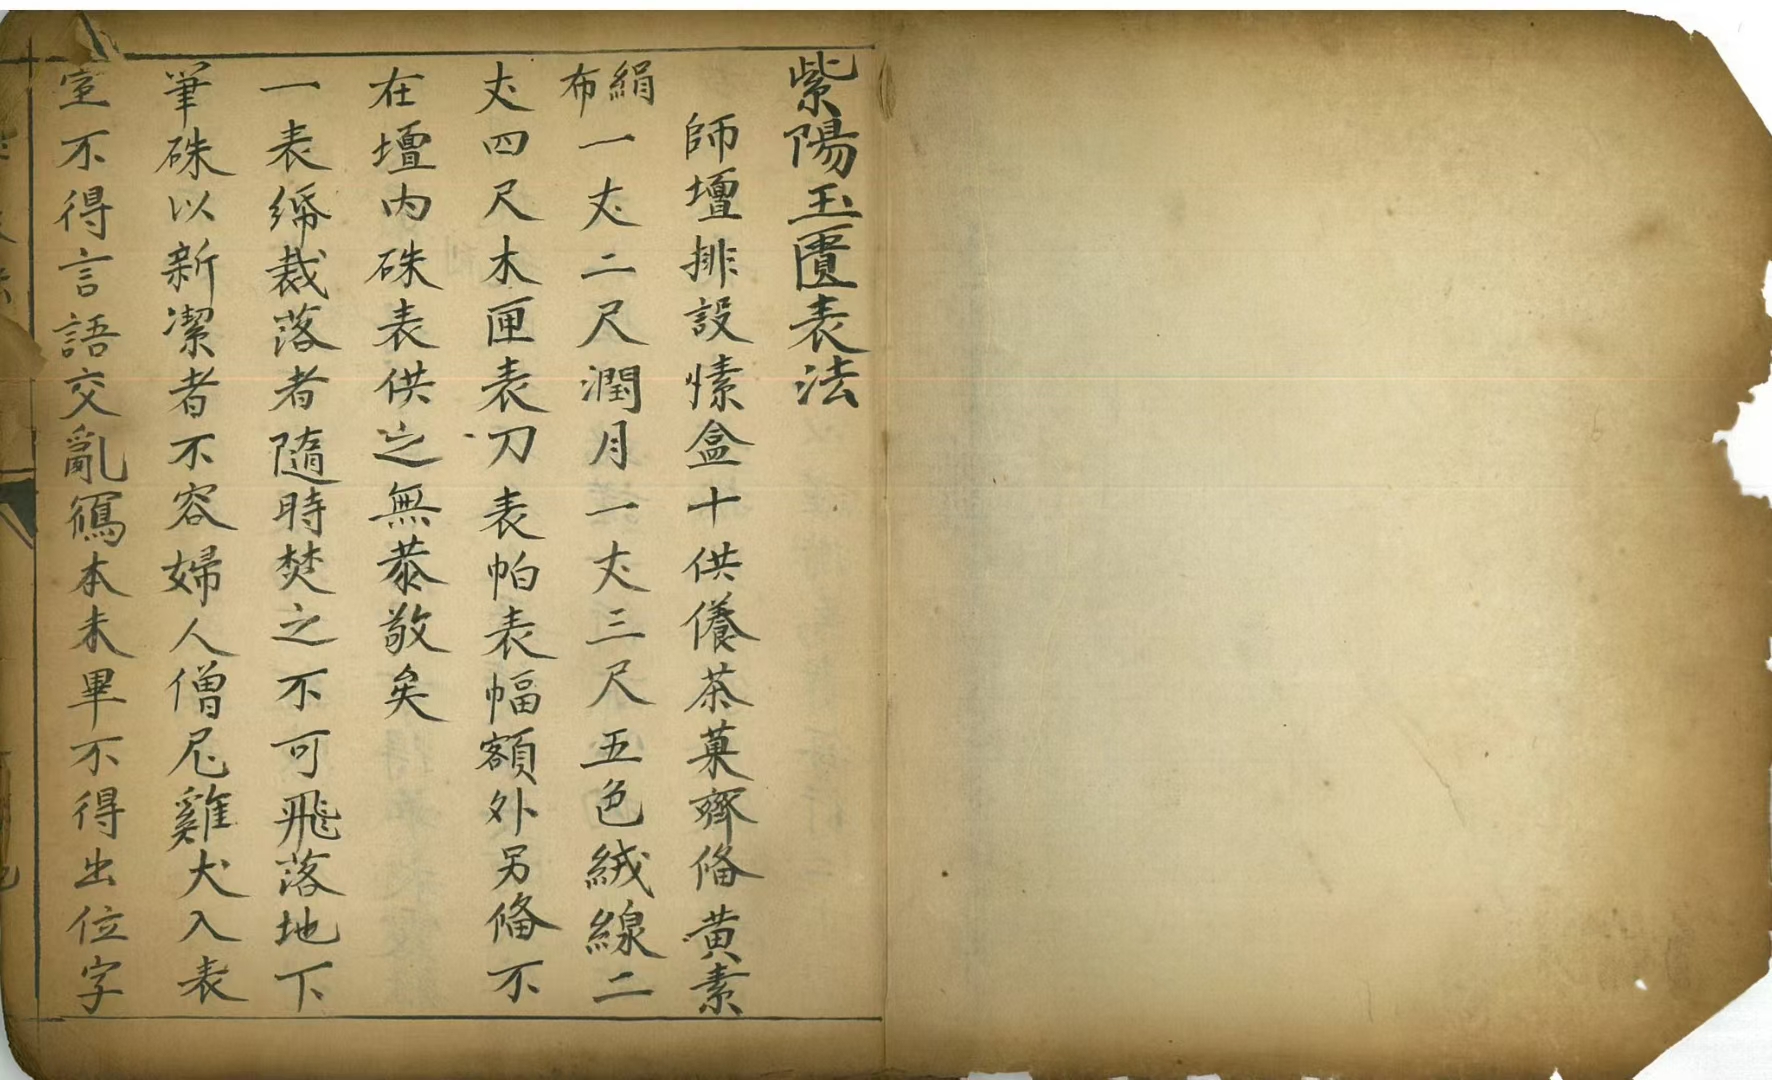 紫陽玉匱表法
師壇排設愫盒十供儀茶菓齊俻黄素
絹布一丈二尺潤月一丈三尺五色絨線二
丈四尺木匣表刀表帕表幅額外另俻不
在壇内硃表供之無恭敬矣
一表綿裁落者隨時焚之不可飛落地下
筆硃以新潔者不容婦人僧尼雞犬入表
室不得言語交亂寫本未畢不得出位字